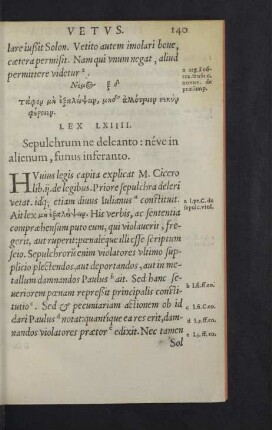 VETVS. 140
lare iussit Solon. Vetito autem imolari boue,
cætera permisit. Nam qui vnum negat, aliud
permittere videtur a.
a arg. l cũ
prætor. de
iud.
Νόμος ξδ
τάφον μὴ ἐξαλείφειν, μηδὲ ἀλλότριον νεκρὸν
φέρειν.
LEX LXIIII.
Sepulchrum ne delcanto: néve in
alienum, funus inferanto.
HVuius legis capita explicat M. Cicero
lib. ij. de legibus. Priore sepulchra deleri
vetat. idq; etiam diuus Iulianus a constituit.
a l. yt. C. de
sepulc. viol.
Ait lex μὴ ἐξαλείφειν. His verbis, ac sententia
compræhensum puto eum, qui violauerit, fre-
gerit, aut ruperit: pœnaleque illi esse scriptum
scio. Sepulchrorū enim violatores vltimo sup-
plicio plectendos, aut deportandos, aut in me-
tallum damnandos Paulus b ait. Sed hanc se-
b l. fi. ff. eo.
ueriorem pœnam repressit principalis consti-
tutio c. Sed & pecuniariam actionem ob id
c l. fi. C. eo.
dari Paulus d notat: quantique ea res erit, dam-
d l. 9. ff. eo.
nandos violatores prætor e edixit. Nec tamen
e l. 3. ff. eo.
Sol